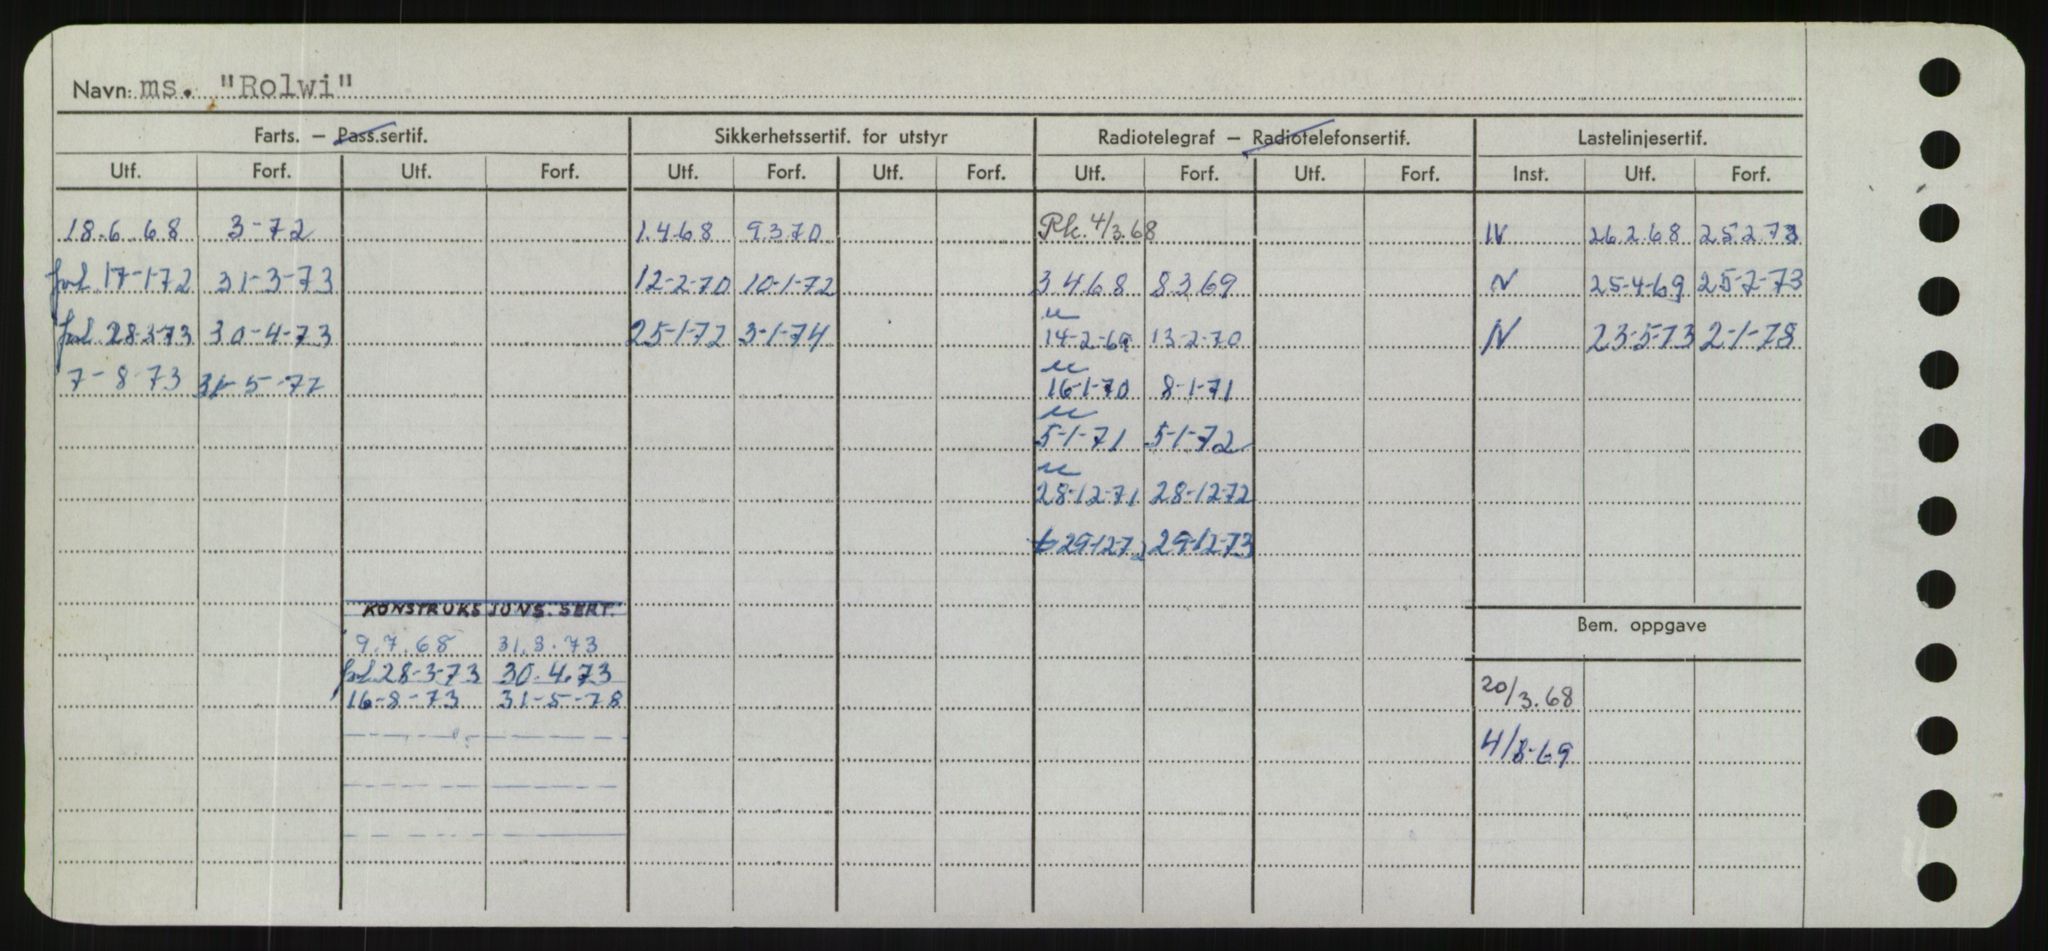 Navn: ms. "Rolwi"
Farts. – Pass.sertif. Sikkerhetssertif. for utstyr Radiotelegraf – Radiotelefonsertif. Lastelinjesertif.
Utf. Forf. Utf. Forf. Utf. Forf. Utf. Forf. Utf. Forf. Utf. Forf. Inst. Utf. Forf.
18.6.68 3-72 1.4.68 9.3.70 Pk. 4/3.68 N 26.2.68 25.2.73
forl. 17-1-72 31-3-73 12-2-70 10-1-72 3.4.68 8.3.69 N 25-4-69 25-2-73
forl. 28-3-73 30-4-73 25-1-72 3-1-74 14-2-69 13-2-70 N 23-5-73 2-1-78
7-8-73 31-5-77 16-1-70 8-1-71
5-1-71 5-1-72
28-12-71 28-12-72
29-12-72 29-12-73
KONSTRUKSJONS.SERT.
Bem. oppgave
9.7.68 31.3.73
forl. 28-3-73 30.4.73
16-8-73 31-5-78
20/3.68
4/8-69